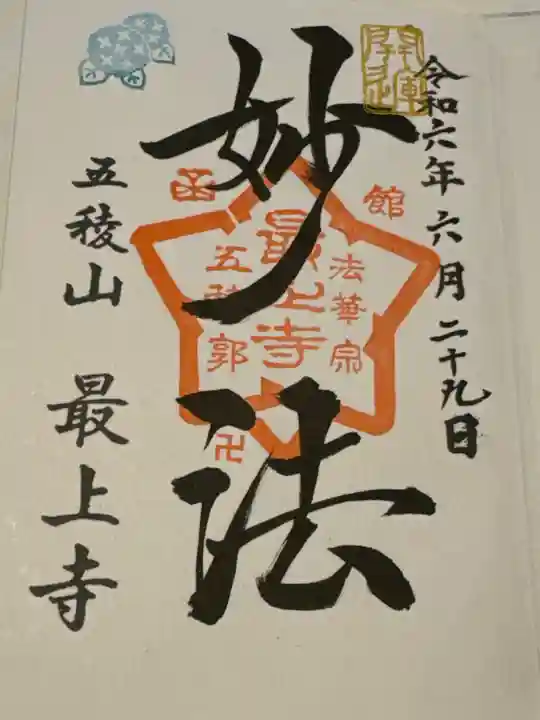 開運
令和六年六月二十九日
妙法
函館
法華宗
最上寺
五稜郭
卍
五稜山 最上寺